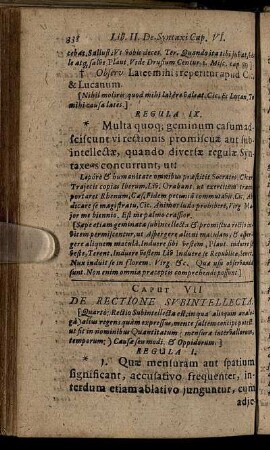 338 Lib. II. De Syntaxi Cap. VI.
cebat. Sallust. Vt Sabis vices. Ter. Quando ita tibi jubat, vale
le atq; salve Plaut. Vide Drusium Centur. 2. Misc. cap
† Observ. Latet mihi, reperitur apud Cic.
& Lucanum.
[Nihil moliris quod mihi latere valeat. Cic. Et Lucan. Te
mihi causa latet.]
REGULA IX.
* Multa quoq; geminum casum ad-
sciscunt vi rectionis promiscuæ aut sub-
intellectæ, quando diversæ regulæ Syn-
taxeos concurrunt, ut:
Lepore & humanitate omnibus præstitit Socrates Cic.
Trajecit copias Iberum. Liv. Orabant, ut exercitum trans-
portaret Rhenum, Cæs. Fidem pecuniâ commutabit. Cic. Ab-
dicare se magistratu, Cic. Animos ludo prohibet, Virg Ma-
jor me biennio. Est me palmo crassior.
[Sæpe etiam geminata subintellecta & promiscua rectio-
bitem permiscentur, ut Aspergere alicui maculam &
gere aliquem maculâ. Induere sibi vestem, Plaut. induere
veste, Terent. Induere hostem Lib Induere se Republica. Senec.
Nux induit se in florem. Virg. &c. Quæ usu observanda
sunt. Non enim omnia præceptis comprehendi possunt.]
Caput VII
DE RECTIONE SUBINTELLECTA.
[Quartò; Rectio Subintellecta est, in qua aliquam analo-
gâ) alius regens quàm expressum, mente saltem concipi potest.
ut fit in nominibus Quantitatum (mensuræ intervallorum,
temporum;) Causæ seu modi, & Oppidorum.]
REGULA I.
* 1. Quæ mensuram aut spatium
significant, accusativo frequenter, in-
terdum etiam ablativo junguntur, cum
adje-